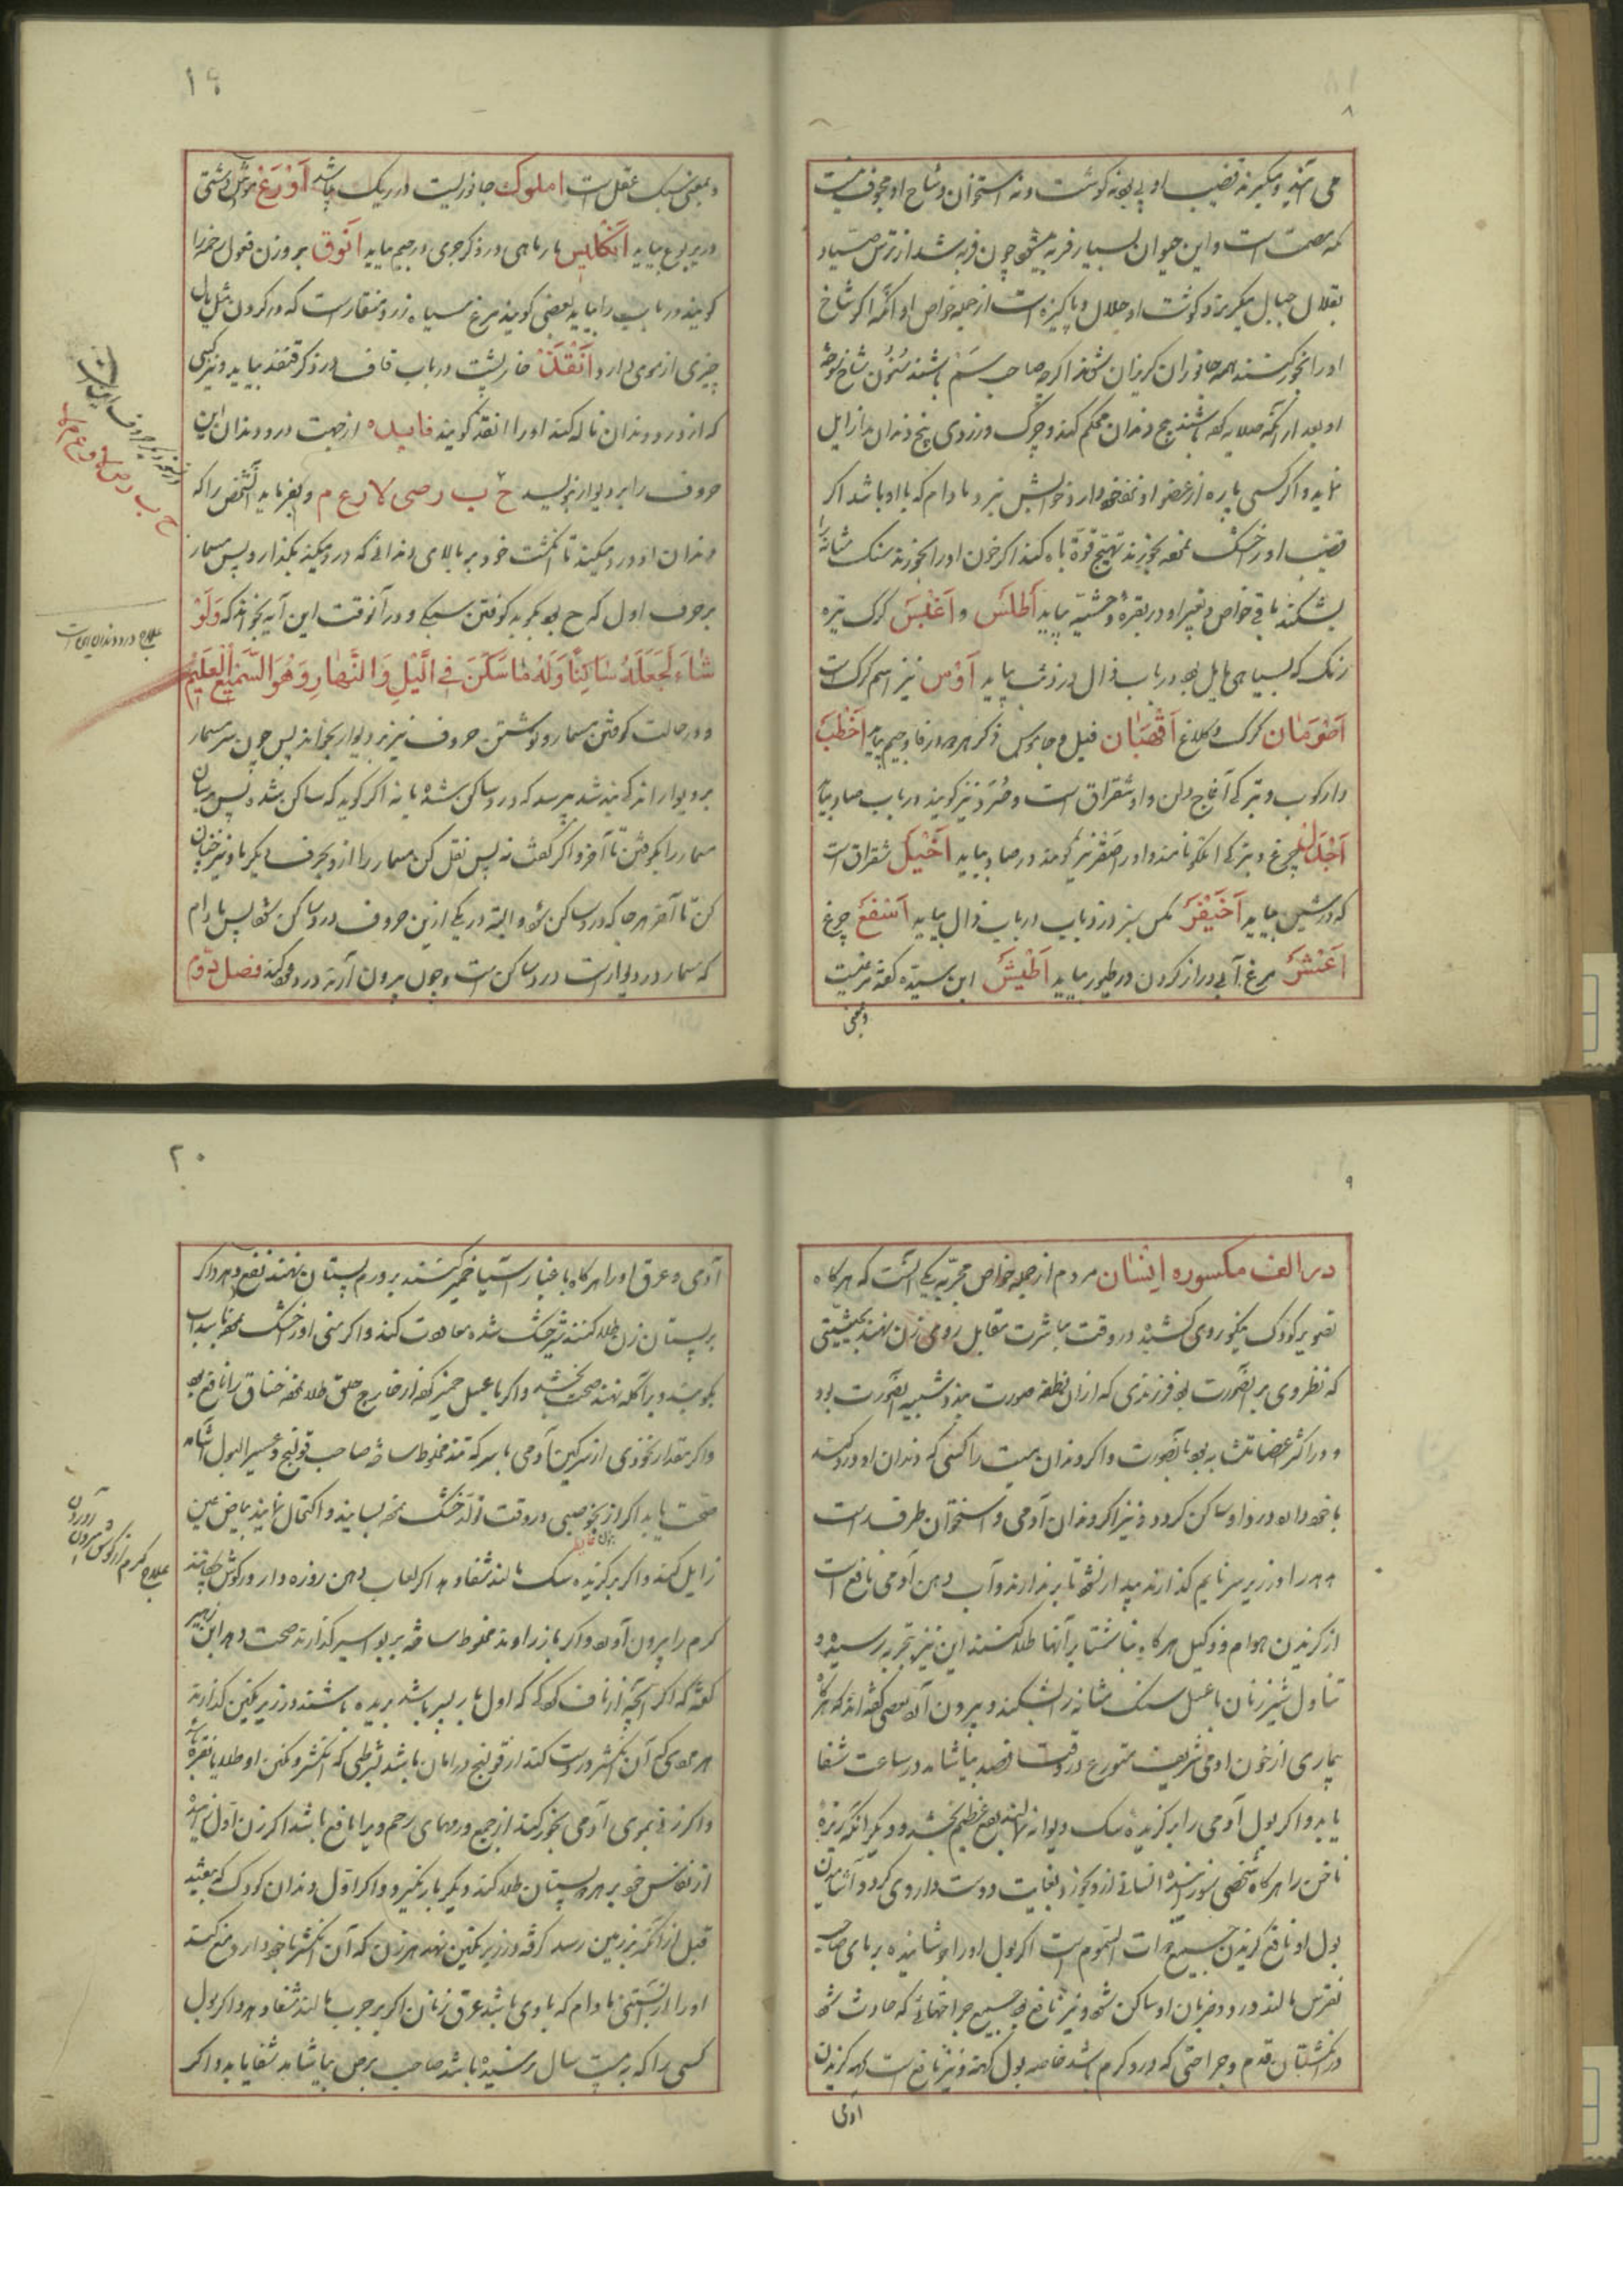 ۸
می آیند و میگیرند قضیب او پی بود نه گوشت و نه استخوان و شاخ او مجوف نیست
که مصمت است و این حیوان بسیار فربه میشود چون فربه شد از ترس صیاد
بقلال جبال میگریزد گوشت او حلال و پاکیزه است از جمله خواص او آنکه اگر شاخ
او را بخور کنند همه جانوران گریزان شوند اگرچه صاحب سم باشند سنون شاخ سوخته
او بعد از آنکه صلایه کرده باشند بیخ دندان محکم کند و چرک و زردی بیخ دندان را زایل
نماید و اگر کسی پاره از عضو او با خود دارد خوابش نبرد مادام که با او باشد اگر
قضیب او را خشک نموده بخورند تهییج قوة باه کند اگر خون او را بخورند سنک مثانه را
بشکند باقی خواص و تعبیر او در بقره وحشیه بیاید اطلس و اغبس کرک تیره
رنک که بسیاهی مایل بود در باب ذال در ذئب بیاید اوس نیز اسم کرک است
اصرمان کرک و کلاغ اقهبان فیل و جاموس ذکر هر دو در فا و جیم بیاید اخطب
دارکوب و بترکی آغاج دلن و او شقراق است و صرد نیز گویند در باب صاد بیاید
اجدل چرغ و بترکی ایتلکو نامند و او را صقر نیز گویند در صاد بیاید اخیل شقراق است
که در شین بیاید اخیفر مکس سبز در ذباب در باب ذال بیاید اسفع چرغ
اعنش مرغ آبی دراز گردن در طیور بیاید اطیش ابن سیده گفته مرغیست
وبمعنی
۱۹
وبمعنی سبک عقل است املوک جانوریست در ریک باشد اورغ موش دشتی
در یربوع بیاید انکلیس مار ماهی در ذکر جری در جیم بیاید انوق بر وزن فعول رخمه را
گویند در باب را بیاید بعضی گویند مرغ سیاه زرد منقار است که در گردن مثل یال
چیزی از موی دارد انقد خارپشت در باب قاف در ذکر قنفذ بیاید و نیز کسی
که از درد دندان ناله کند او را انقد گویند فایده از جهت درد دندان این
حروف را بر دیوار نویسد ح ب ر ص لا ر ع م و بفرماید آنشخص را که
دندان او درد میکند تا انگشت خود بر بالای دندانی که درد میکند بگذارد پس مسمار
بر حرف اول که ح بود بگیرد بکوفتن سبکی و در آنوقت این آیه بخواند که وَلَوْ
شَاءَ لَجَعَلَهُ سَاكِنًا وَلَهُ مَا سَكَنَ فِي اللَّيْلِ وَالنَّهَارِ وَهُوَ السَّمِيعُ الْعَلِيمُ
و در حالت کوفتن مسمار و نوشتن حروف نیز بر دیوار بخواند پس چون سر مسمار
بر دیوار اندکی بند شد بپرسد که درد ساکن شده یا نه اگر گوید که ساکن شده پس برسان
مسمار را بکوفتن تا آخر و اگر گفت نه پس نقل کن مسمار را از و بحرف دیگر باو نیز چنان
کن تا آخر هر جا که درد ساکن شود و البته در یکی ازین حروف درد ساکن شود پس مادام
که مسمار در دیوار است درد ساکن است و چون بیرون آرند درد عود کند فصل دوم
علاج درد دندان این است
۹
در الف مکسوره انسان مردم از جمله خواص مجربه یکی آنست که هر گاه
تصویر کودک نیکو روی کشیده در وقت مباشرت مقابل روی زن نهند بحیثیتی
که نظر وی بر آنصورت بود فرزندی که از آن نطفه صورت بندد شبیه آنصورت بود
و در اکثر اعضا مشابه بود بآنصورت و اگر دندان میت را کسی که دندان او درد کند
با خود دارد درد او ساکن گردد و نیز اگر دندان آدمی و استخوان طرف راست
هدهد را در زیر سر نایم گذارند بیدار نشود تا برندارند و آب دهن آدمی نافع است
از گزیدن هوام و زکیل هر گاه ناشتا بر آنها طلا کنند این نیز بتجربه رسیده و
تناول شیر زنان با عسل سنک مثانه را بشکند و بیرون آورد بعضی گفته اند که هر گاه
بیماری از خون آدمی شریف متورع در وقت فصد بیاشامد در ساعت شفا
یابد و اگر بول آدمی را بر گزیده سک دیوانه نهند نفع عظیم بخشد و دیگر آنکه ریزه
ناخن را هر گاه شخصی بسوزد انسانی از و بخورد بغایت دوست دار وی گردد و آشامیدن
بول او نافع گزیدن جمیع ذوات السموم است اگر بول او را جوشانیده بر پای صاحب
نقرس مالند درد و ضربان او ساکن شود و نیز نافع بود جمیع جراحتهائی که حادث شود
در انگشتان قدم و جراحتی که در و کرم باشد خاصه بول کهنه و نیز نافع است گزیدن
آدمی
۲۰
آدمی و عرق او را هر گاه با غبار آسیا خمیر کنند بر ورم پستان نهند نفع دهد و اگر
بر پستان زن طلا کنند شیر خشک شده معاودت کند و اگر منی او را خشک نموده
بخشد و اگر با عسل خمیر کرده از خارج حلق طلا نموده خناق را نافع بود
واگر مقدار نخودی از سرکین آدمی با سرکه تند مخلوط ساخته صاحب قولنج و عسر البول آشامد
صحت یابد اگر از نجو صبی در وقت تولد خشک نموده بسایند و اکتحال نمایند بیاض عین
زایل کند و اگر بر گزیده سک مالند شفا دهد اگر لعاب دهن روزه دار در گوش چکانند
کرم را بیرون آورد و اگر با زراوند مخلوط ساخته بر بواسیر گذارند صحت دهد ابن زهر
گفته که اگر آنچه از ناف کودک که اول بار پسر باشد بریده باشند در زیر نکین گذارند
هر عضوی که آن انگشتر درست کند از قولنج در امان باشد بشرطی که انگشتر و نکین او طلا یا نقره باشد
واگر زنی بموی آدمی بخور کند از جمیع دردهای رحم ویرا نافع باشد اگر زن اول زاییده
از نفاس خود بر هر دو پستان طلا کند دیگر بار نگیرد و اگر اول دندان کودک که بیفتد
قبل از آنکه بزمین رسد گرفته در زیر نکین نهد هر زن که آن انگشتر با خود دارد منع کند
او را از آبستنی مادام که با وی باشد عرق زنان اگر بر جرب مالند شفا دهد و اگر بول
کسی را که به بیست سال رسیده باشد صاحب برص بیاشامد شفا یابد و اگر
علاج کرم از گوش بیرون آوردن